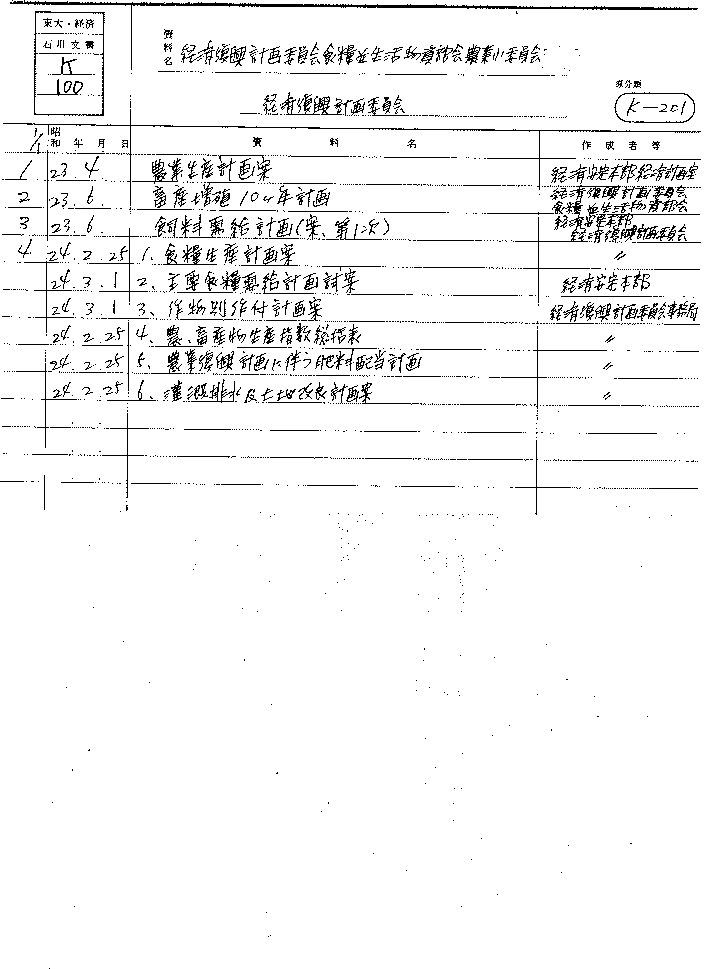 東大・経済
石川文書
K
100
資料名 経済復興計画委員会食糧並生活物資部会農業小委員会
経済復興計画委員会
原分類
K-201
1/1 昭和 年 月 日 資 料 名 作成者等
1 23.4 農業生産計画案 経済安定本部経済計画室
2 23.6 畜産増殖10ヶ年計画 経済復興計画委員会食糧並生活物資部会
3 23.6 飼料需給計画(案、第1次) 経済安定本部 経済復興計画委員会
4 24.2.25 1、食糧生産計画案 〃
24.3.1 2、主要食糧需給計画試案 経済安定本部
24.3.1 3、作物別作付計画案 経済復興計画委員会事務局
24.2.25 4、農、畜産物生産指数総括表 〃
24.2.25 5、農業復興計画に伴う肥料配当計画 〃
24.2.25 6、灌漑排水及土地改良計画案 〃